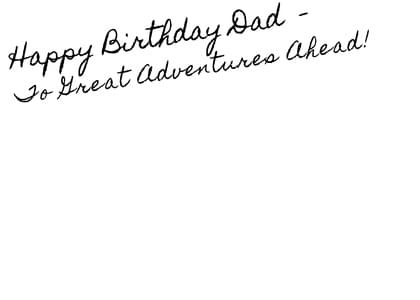 Happy Birthday Dad -
To Great Adventures Ahead!